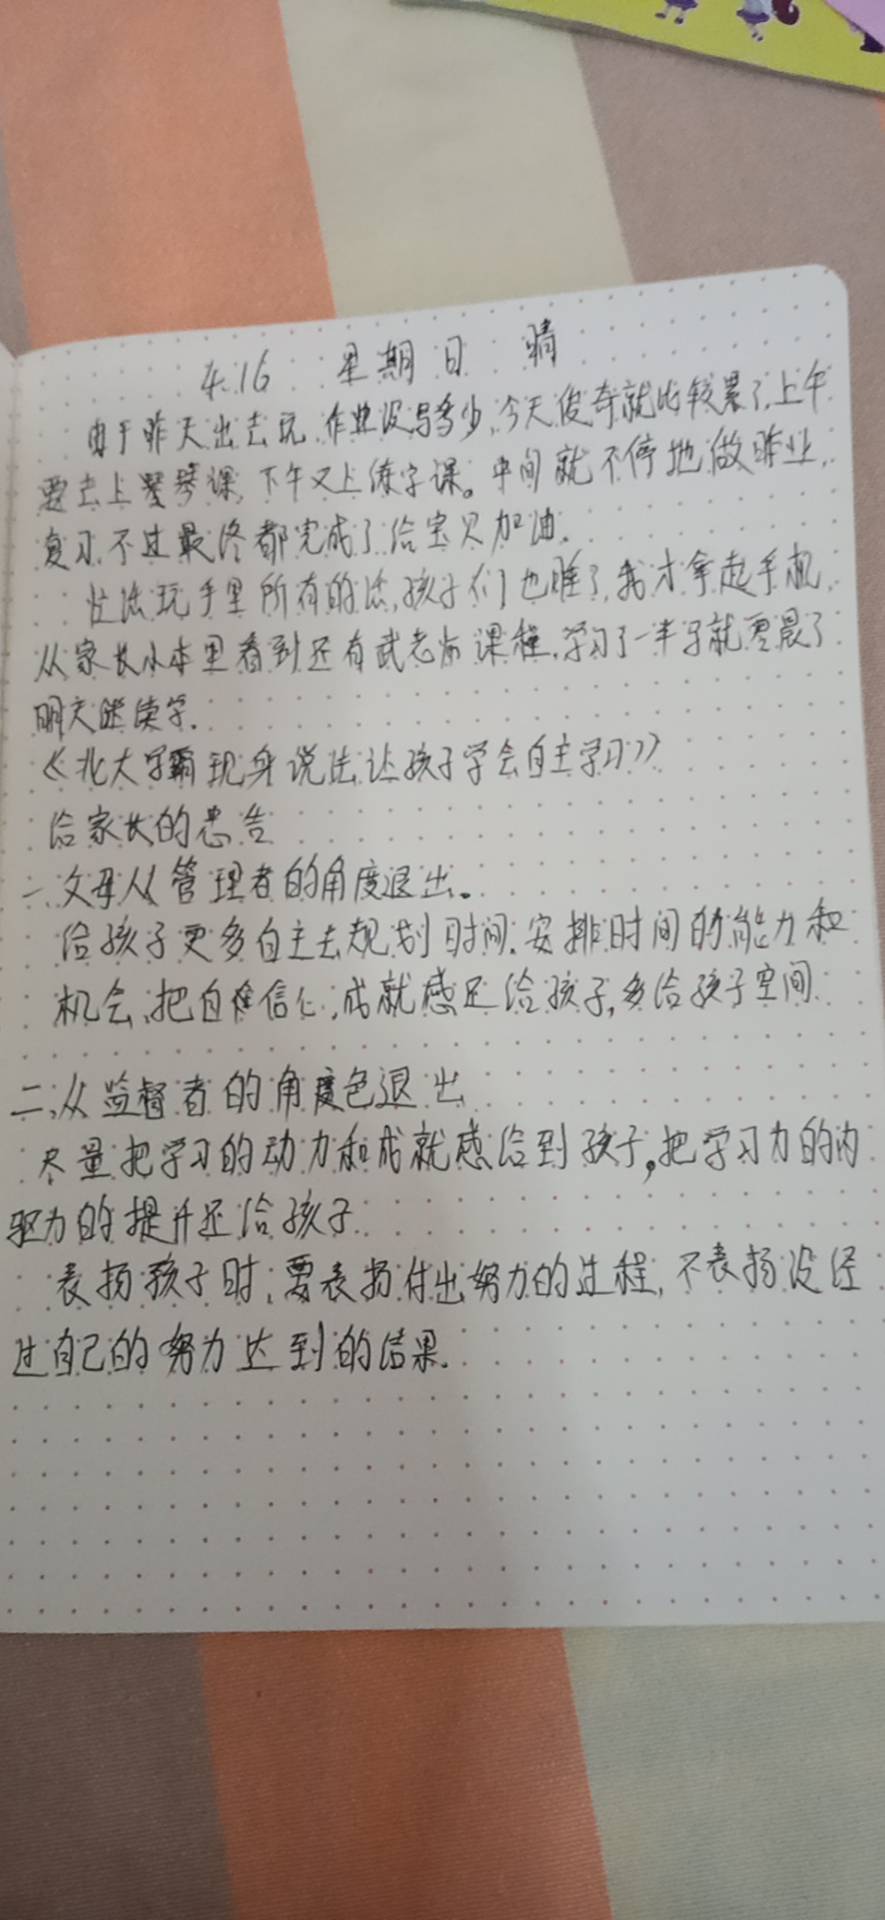 4.16 星期日 晴
由于昨天出去玩,作业没写多少,今天俊奇就比较累了,上午
要去上琴课,下午又上练字课。中间就不停地做昨业,
复习,不过最终都完成了给宝贝加油。
忙法玩手里所有的活,孩子们也睡了,我才拿起手机,
从家长小本里看到还有武老师课程,学习了一半字就零晨了
明天继续学.
《北大学霸现身说法让孩子学会自主学习》
给家长的忠告
一、父母从管理者的角度退出。
给孩子更多自主去规划时间.安排时间的能力和
机会,把自信心,成就感还给孩子,多给孩子空间
二、从监督者的角度色退出
尽量把学习的动力和成就感给到孩子,把学习力的内
驱力的提升还给孩子
表扬孩子时,要表扬付出努力的过程,不表扬没经
过自己的努力达到的结果.